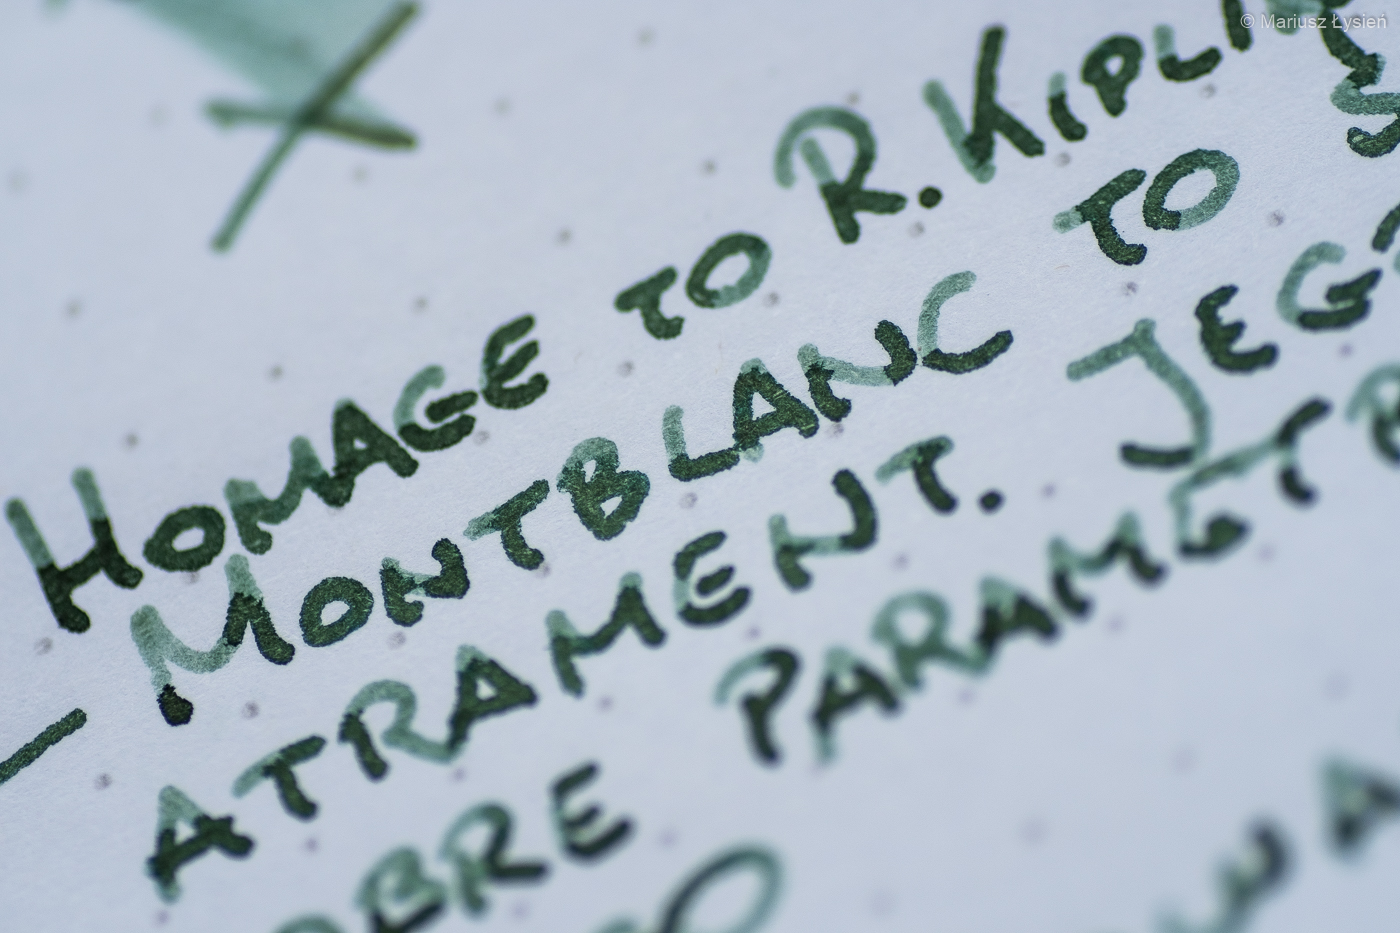 © Mariusz Łysień
Homage to R. Kipli
Montblanc to S
Atrament. Jego
bre paramet